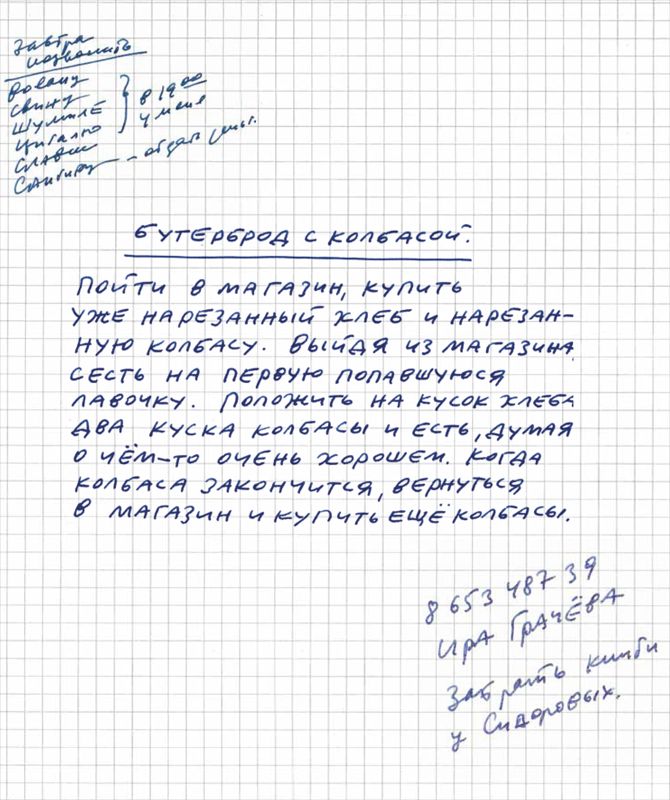 Завтра
позвонить
Вовану
Свину
Шумиле
Цигалю
Славе
в 19⁰⁰
у меня
– отдать
БУТЕРБРОД С КОЛБАСОЙ.
ПОЙТИ В МАГАЗИН, КУПИТЬ
УЖЕ НАРЕЗАННЫЙ ХЛЕБ И НАРЕЗАН–
НУЮ КОЛБАСУ. ВЫЙДЯ ИЗ МАГАЗИНА
СЕСТЬ НА ПЕРВУЮ ПОПАВШУЮСЯ
ЛАВОЧКУ. ПОЛОЖИТЬ НА КУСОК ХЛЕБА
ДВА КУСКА КОЛБАСЫ И ЕСТЬ, ДУМАЯ
О ЧЁМ–ТО ОЧЕНЬ ХОРОШЕМ. КОГДА
КОЛБАСА ЗАКОНЧИТСЯ, ВЕРНУТЬСЯ
В МАГАЗИН И КУПИТЬ ЕЩЁ КОЛБАСЫ.
8 653 487 39
Ира Грачёва
Забрать
у Сидоровых.